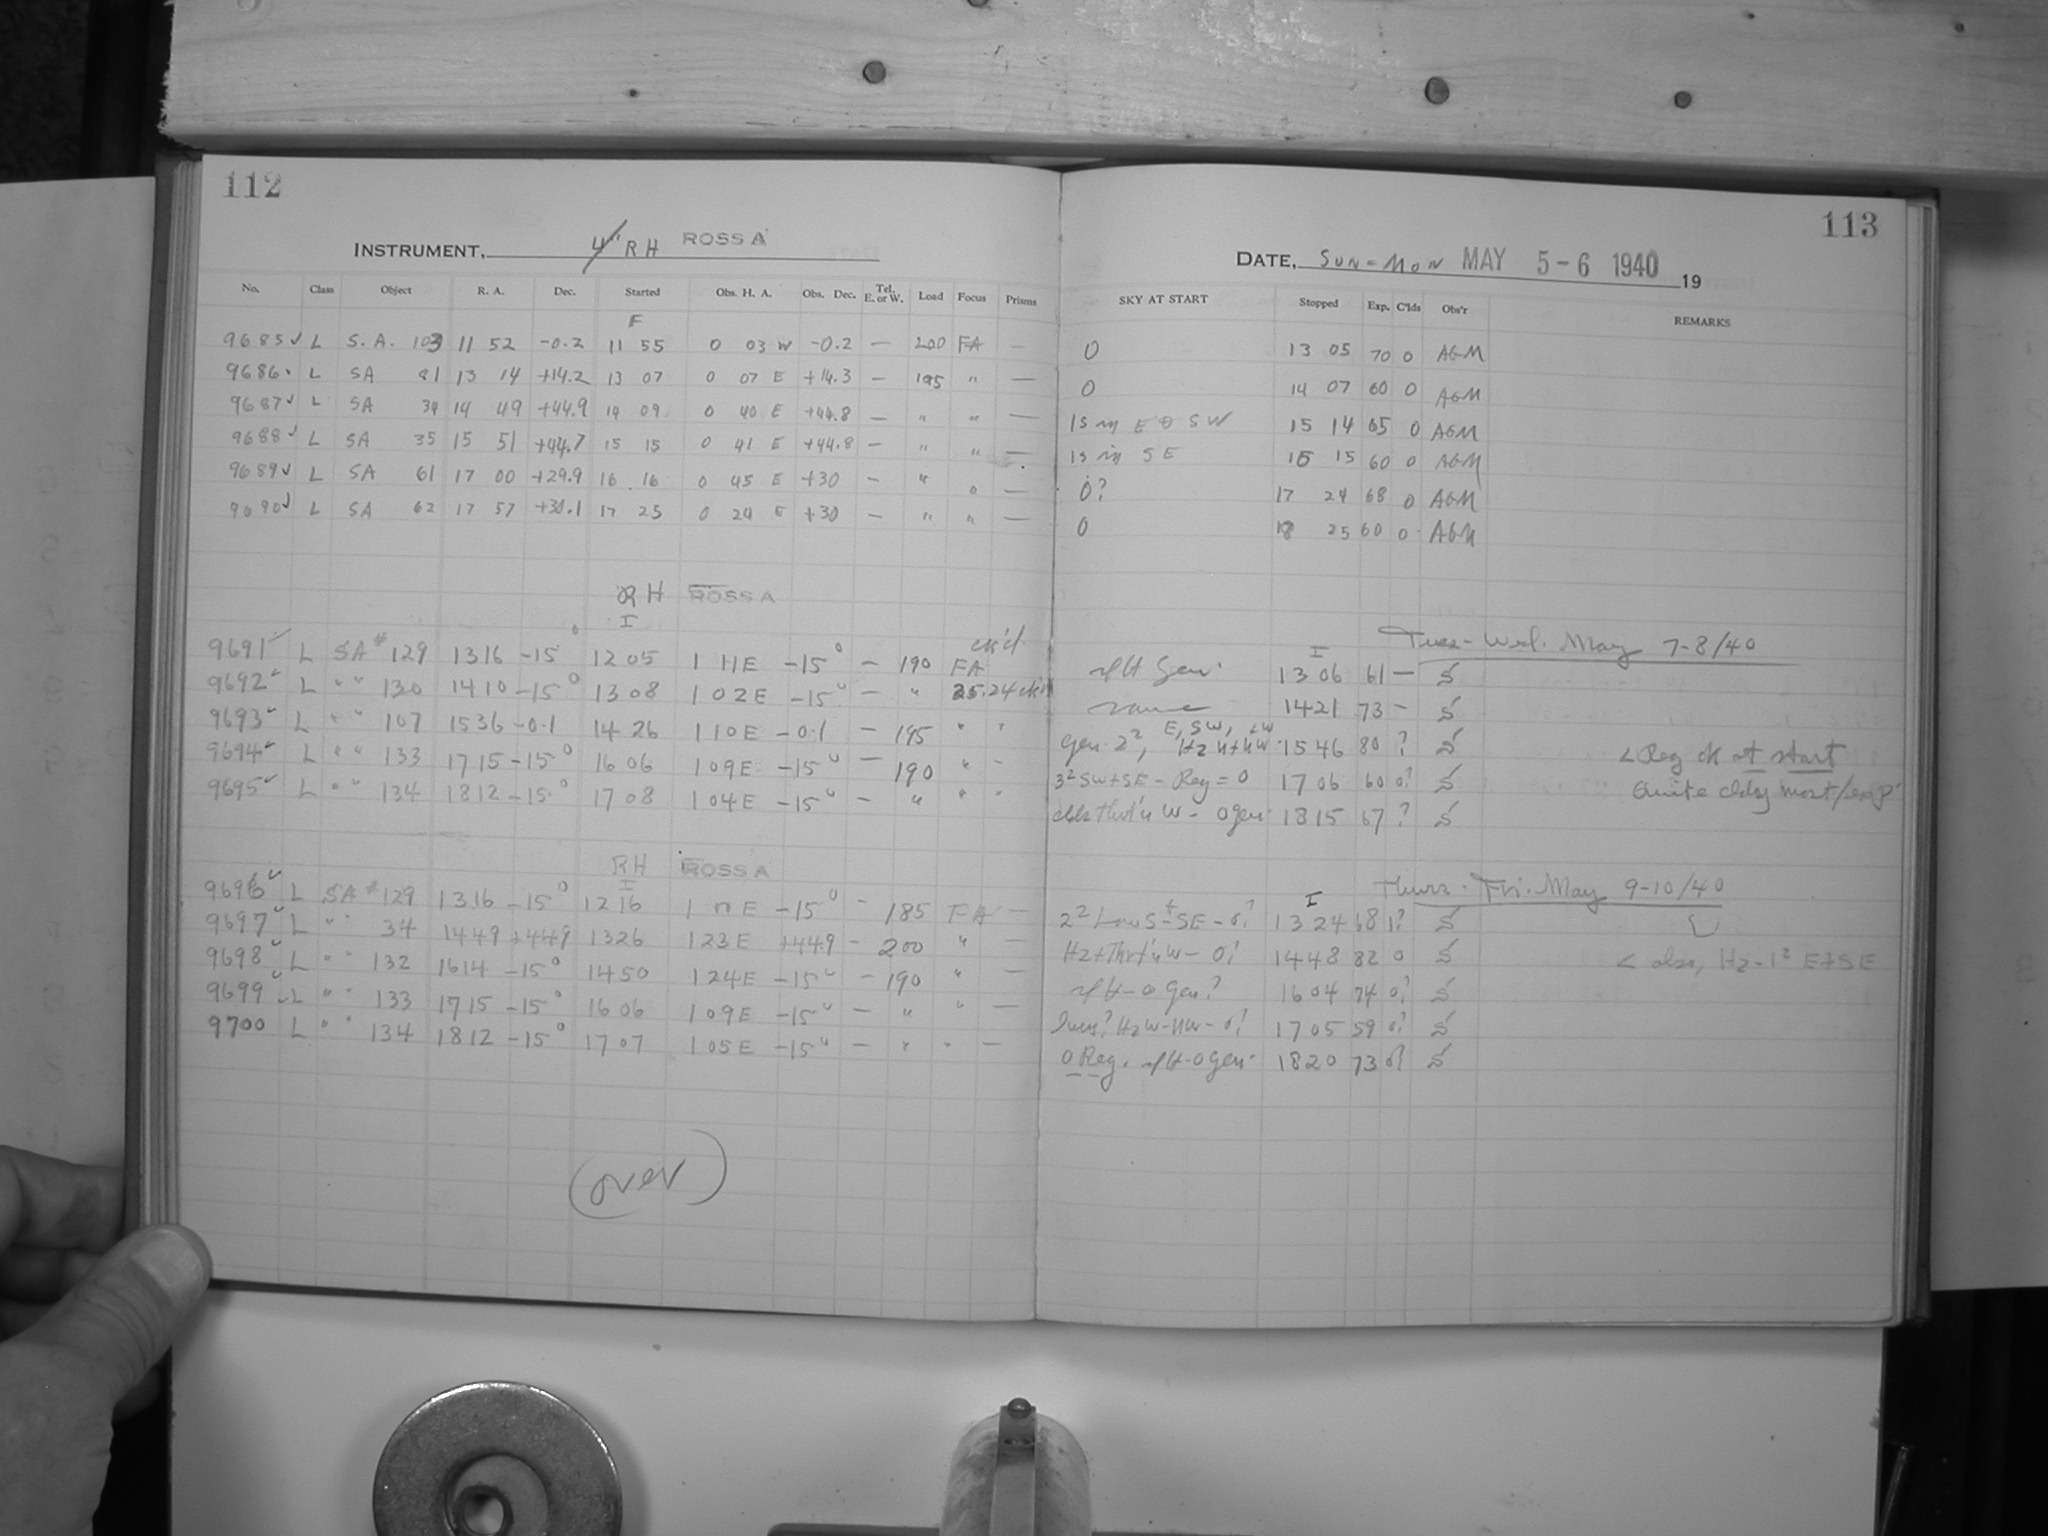 112
INSTRUMENT, 4" RH ROSS A
No. Class Object R. A. Dec. Started Obs. H. A. Obs. Dec. Tel. E. or W. Load Focus Prisms
F
9685 ✓ L S. A. 103 11 52 -0.2 11 55 0 03 W -0.2 — 200 FA —
9686 ✓ L SA 81 13 14 +14.2 13 07 0 07 E +14.3 — 195 " —
9687 ✓ L SA 34 14 49 +44.9 14 09 0 40 E +44.8 — " " —
9688 ✓ L SA 35 15 51 +44.7 15 15 0 41 E +44.8 — " " —
9689 ✓ L SA 61 17 00 +29.9 16 16 0 45 E +30 — " " —
9690 ✓ L SA 62 17 57 +30.1 17 25 0 24 E +30 — " " —
RH ROSS A
I
9691 ✓ L SA # 129 1316 -15° 1205 1 11E -15° — 190 FA ck'd
9692 ✓ L " " 130 1410 -15° 1308 1 02E -15° — " 25.24
9693 ✓ L " " 107 1536 -0.1 1426 1 10E -0.1 — 195 " "
9694 ✓ L " " 133 1715 -15° 1606 1 09E -15° — 190 " "
9695 ✓ L " " 134 1812 -15° 1708 1 04E -15° — " " "
RH ROSS A
I
9696 ✓ L SA # 129 1316 -15° 1216 1 E -15° — 185 FA —
9697 ✓ L " " 34 1449 +449 1326 123E +449 — 200 " —
9698 ✓ L " " 132 1614 -15° 1450 124E -15° — 190 " —
9699 ✓ L " " 133 1715 -15° 1606 109E -15° — " " —
9700 L " " 134 1812 -15° 1707 105E -15° — " " —
(over)
113
DATE, SUN-MON MAY 5-6 1940 19
SKY AT START Stopped Exp. C'lds Obs'r REMARKS
0 13 05 70 0 AGM
0 14 07 60 0 AGM
1s in E 0 SW 15 14 65 0 AGM
1s in SE 16 15 60 0 AGM
0? 17 24 68 0 AGM
0 18 25 60 0 AGM
Tues-Wed. May 7-8/40
I
Gen. 1306 61 —
same 1421 73 —
E, SW, +W
Gen 2², Hz N+NW 1546 80 ? < Reg ok at start
3² SW+SE - Reg = 0 1706 60 0? Quite cldy most/exp
W - 0 gen. 1815 67 ?
Thurs.-Fri. May 9-10/40
I
2² Low S+SE - 0? 1324 68 1?
Hz+Thrt'n W - 0? 1448 82 0 < Hz - 1² E+SE
- 0 Gen? 1604 74 0?
Hz W-NW - 0? 1705 59 0?
0 Reg. - 0 Gen. 1820 73 0?